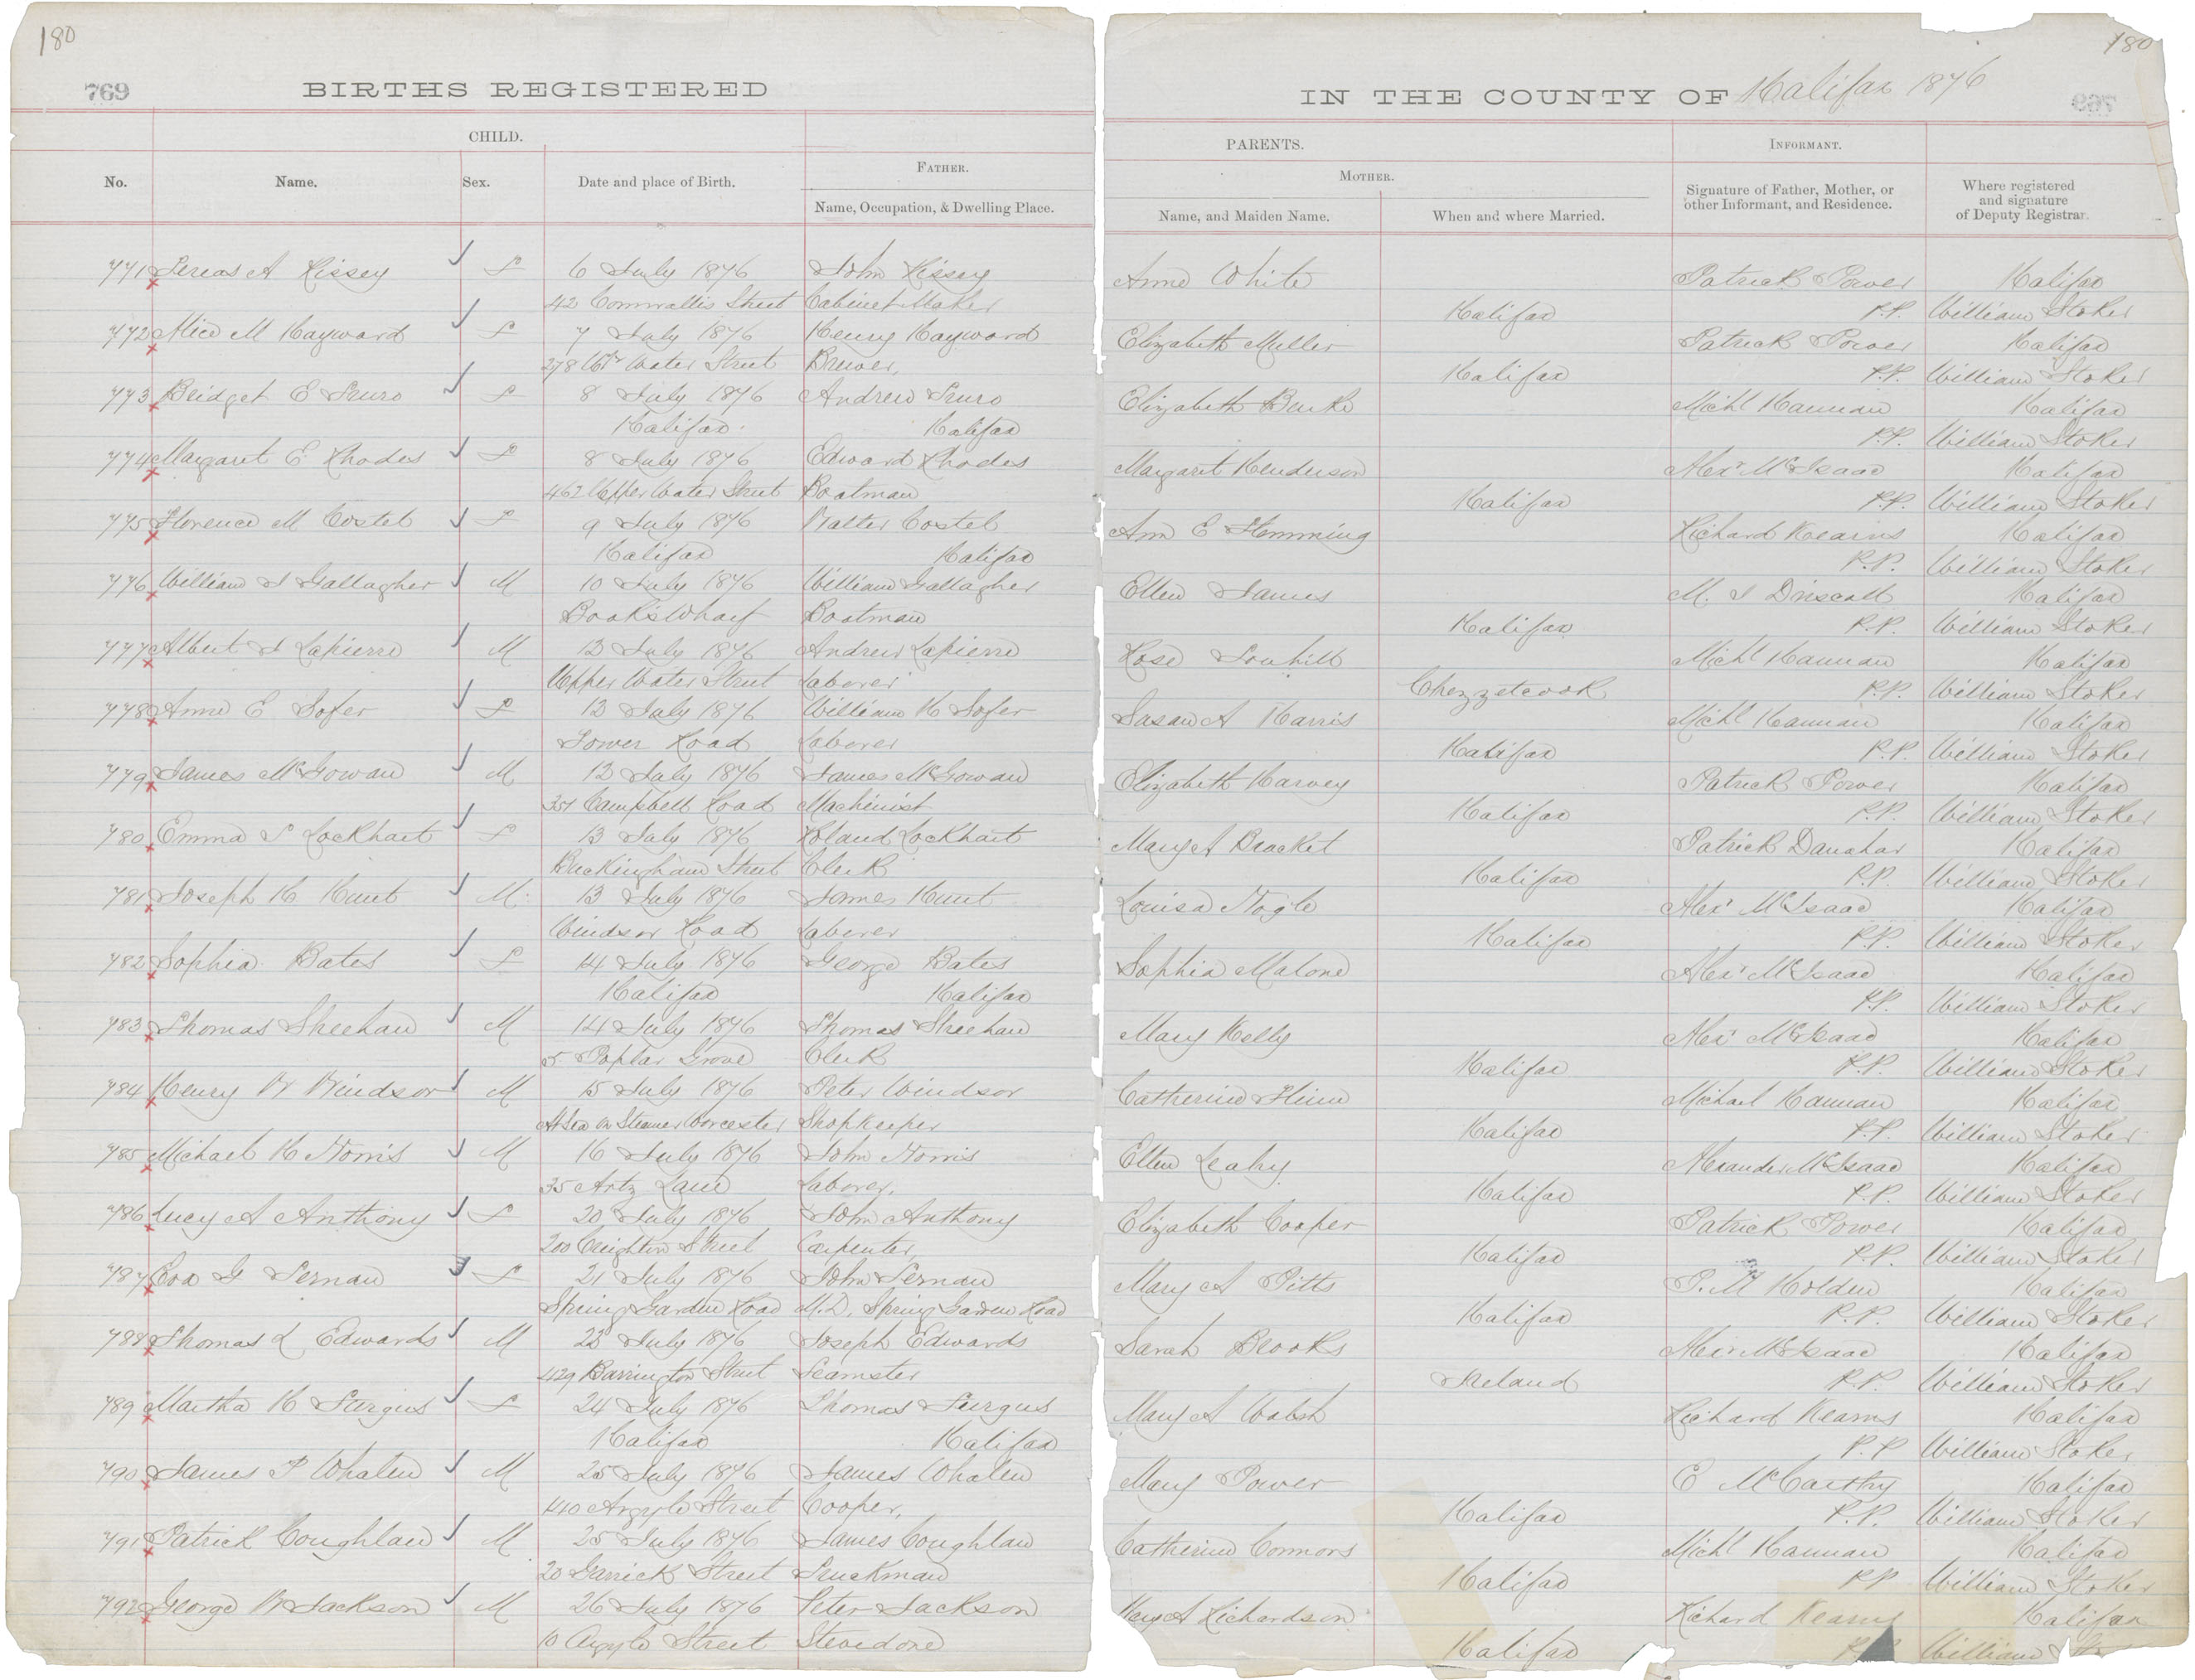 180
180
769
BIRTHS REGISTERED
IN THE COUNTY OF Halifax 1876
769
CHILD.
PARENTS.
INFORMANT.
No.
Name.
Sex.
Date and place of Birth.
FATHER.
Name, Occupation, & Dwelling Place.
MOTHER.
Name, and Maiden Name.
When and where Married.
Signature of Father, Mother, or other Informant, and Residence.
Where registered and signature of Deputy Registrar.
771 A Kissey F 6 July 1876 John Kissey Anne White Patrick Power Halifax
42 Cornwallis Street Cabinet Maker Halifax P.P. William Stoker
772 Alice M Hayward F 7 July 1876 Henry Hayward Elizabeth Muller Patrick Power Halifax
278 Water Street Brewer, Halifax P.P. William Stoker
773 Bridget E F 8 July 1876 Andrew Elizabeth Burke Michl Hannan Halifax
Halifax Halifax P.P. William Stoker
774 Margaret E Rhodes F 8 July 1876 Edward Rhodes Margaret Henderson Alexr McIsaac Halifax
462 Upper Water Street Boatman Halifax P.P. William Stoker
775 Florence M Costel F 9 July 1876 Walter Costel Ann E Flemming Richard Kearns Halifax
Halifax Halifax P.P. William Stoker
776 William J Gallagher M 10 July 1876 William Gallagher Ellen James M. J Driscoll Halifax
Wharf Boatman Halifax P.P. William Stoker
777 Albert J Lapierre M 12 July 1876 Andrew Lapierre Rose Michl Hannan Halifax
Upper Water Street Laborer Chezzetcook P.P. William Stoker
778 Anne E Sofer F 12 July 1876 William H Sofer Susan A Harris Michl Hannan Halifax
Tower Road Laborer Halifax P.P. William Stoker
779 James McGowan M 12 July 1876 James McGowan Elizabeth Harvey Patrick Power Halifax
351 Campbell Road Machinist Halifax P.P. William Stoker
780 Emma S Lockhart F 13 July 1876 Roland Lockhart Mary A Bracket Patrick Danahar Halifax
Buckingham Street Clerk Halifax P.P. William Stoker
781 Joseph H Hunt M. 13 July 1876 James Hunt Louisa Nogle Alexr McIsaac Halifax
Windsor Road Laborer Halifax P.P. William Stoker
782 Sophia Bates F 14 July 1876 George Bates Sophia Malone Alexr McIsaac Halifax
Halifax Halifax P.P. William Stoker
783 Thomas Sheehan M 14 July 1876 Thomas Sheehan Mary Kelly Alexr McIsaac Halifax
5 Poplar Grove Clerk Halifax P.P. William Stoker
784 Henry W Windsor M 15 July 1876 Peter Windsor Catherine Flinn Michael Hannan Halifax
At Sea on Steamer Worcester Shopkeeper Halifax P.P. William Stoker
785 Michael H Norris M 16 July 1876 John Norris Ellen Leahy Alexander McIsaac Halifax
35 Artz Lane Laborer, Halifax P.P. William Stoker
786 Lucy A Anthony F 20 July 1876 John Anthony Elizabeth Cooper Patrick Power Halifax
200 Creighton Street Carpenter, Halifax P.P. William Stoker
787 Eva G Sernan F 21 July 1876 John Sernan Mary A Pitts P. M Holden Halifax
Spring Garden Road M.D, Spring Garden Road Halifax P.P. William Stoker
788 Thomas L Edwards M 22 July 1876 Joseph Edwards Sarah Brooks Alexr McIsaac Halifax
429 Barrington Street Teamster Ireland P.P. William Stoker
789 Martha H Furgus F 24 July 1876 Thomas Furgus Mary A Walsh Richard Kearns Halifax
Halifax Halifax P.P William Stoker
790 James P Whalen M 25 July 1876 James Whalen Mary Power E McCarthy Halifax
40 Argyle Street Cooper, Halifax P.P. William Stoker
791 Patrick Coughlan M 25 July 1876 James Coughlan Catherine Connors Michl Hannan Halifax
20 Garrick Street Truckman Halifax P.P William Stoker
792 George W Jackson M 26 July 1876 Peter Jackson Mary A Richardson Richard Kearns Halifax
10 Argyle Street Stevedore Halifax William